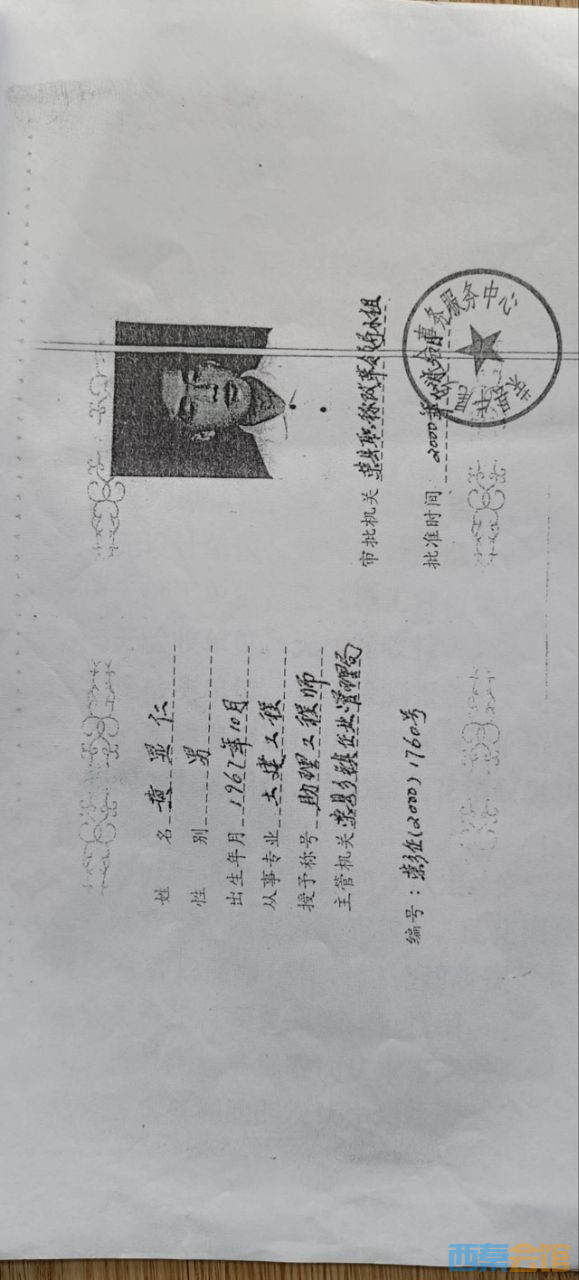 姓 名 黄显仁
性 别 男
出生年月 1967年10月
从事专业 土建工程
授予称号 助理工程师
主管机关 荣县乡镇企业管理局
编号：荣乡企(2000)1760号
审批机关 荣县职称改革领导小组
批准时间 2000年
服务中心
西秦会馆